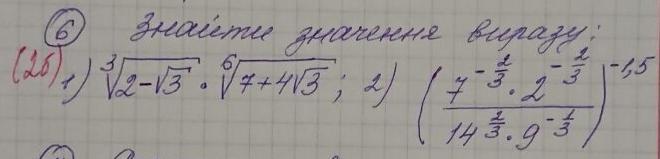 ⑥ Знайти значення виразу:
(2б) 1) ∛(2-√3) · ⁶√(7+4√3); 2) ((7^(-2/3) · 2^(-2/3))/(14^(2/3) · 9^(-1/3)))^(-1,5)